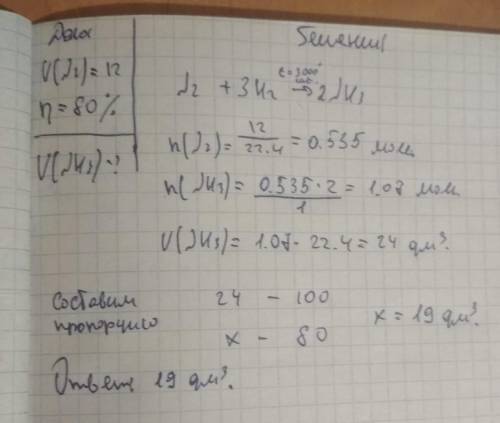 Дано
V(N2)=12
η=80%
V(NH3)-?
Решение
N2 + 3H2 → 2NH3
n(N2)= 12/22.4 = 0.535 моль
n(NH3)= 0.535·2/1 = 1.07 моль
V(NH3)= 1.07·22.4 = 24 дм³.
Составим пропорцию
24 – 100
x – 80
x = 19 дм³.
Ответ 19 дм³.